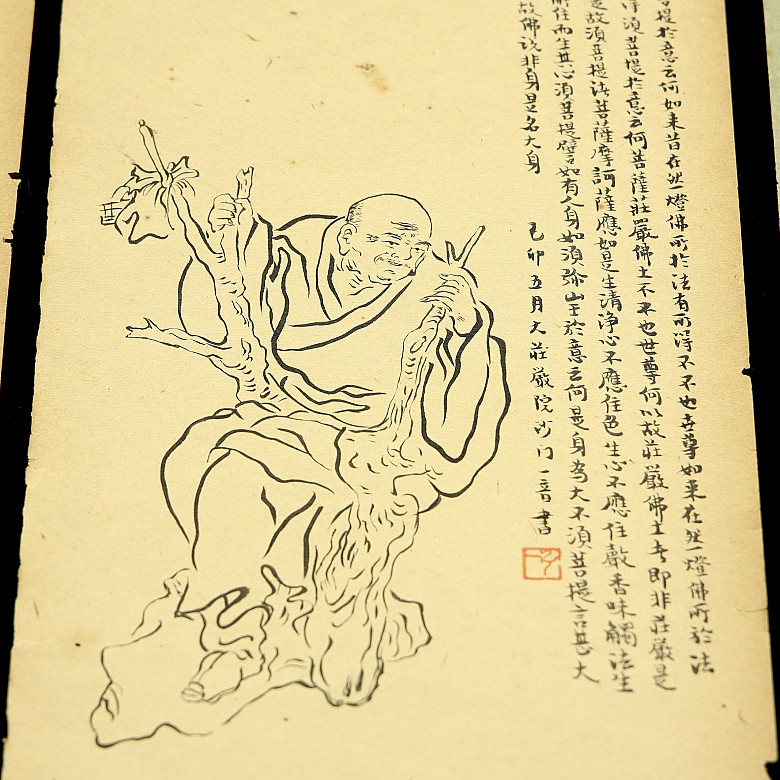 菩提於意云何如来昔在然燈佛所於法有所得不不也世尊如来在然燈佛所於法
得須菩提於意云何菩薩莊嚴佛土不不也世尊何以故莊嚴佛土者即非莊嚴是
是故須菩提諸菩薩摩訶薩應如是生清淨心不應住色生心不應住聲香味觸法生
所住而生其心須菩提譬如有人身如須弥山王於意云何是身為大不須菩提言甚大
故佛说非身是名大身
己卯五月大莊嚴院沙门一音書